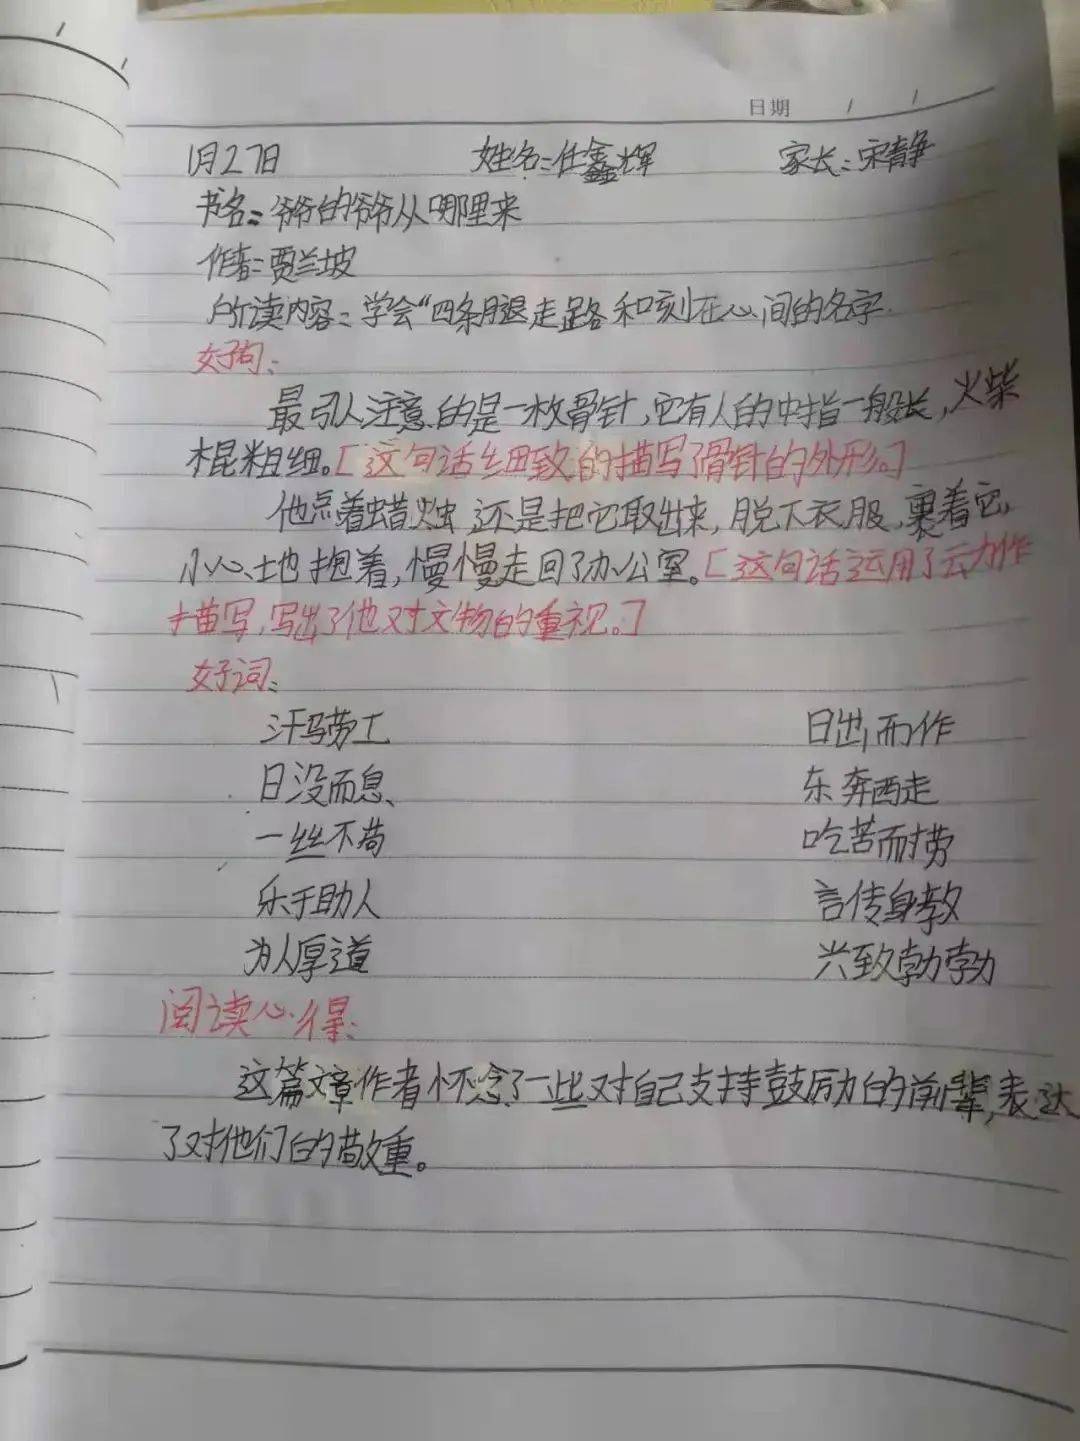 日期 / /
1月27日 姓名:任鑫辉 家长:宋静
书名:爷爷的爷爷从哪里来
作者:贾兰坡
所读内容:学会“四条腿走路和刻在心间的名字.
好句:
最引人注意的是一枚骨针,它有人的中指一般长,火柴
棍粗细。[这句话细致的描写了骨针的外形。]
他点着蜡烛,还是把它取出来,脱下衣服,裹着它,
小心地抱着,慢慢走回了办公室。[这句话运用了动作
描写,写出了他对文物的重视。]
好词:
汗马劳工 日出而作
日没而息、 东奔西走
一丝不苟 吃苦耐劳
乐于助人 言传身教
为人厚道 兴致勃勃
阅读心得:
这篇文章作者怀念了一些对自己支持鼓励的前辈,表达
了对他们的敬重。